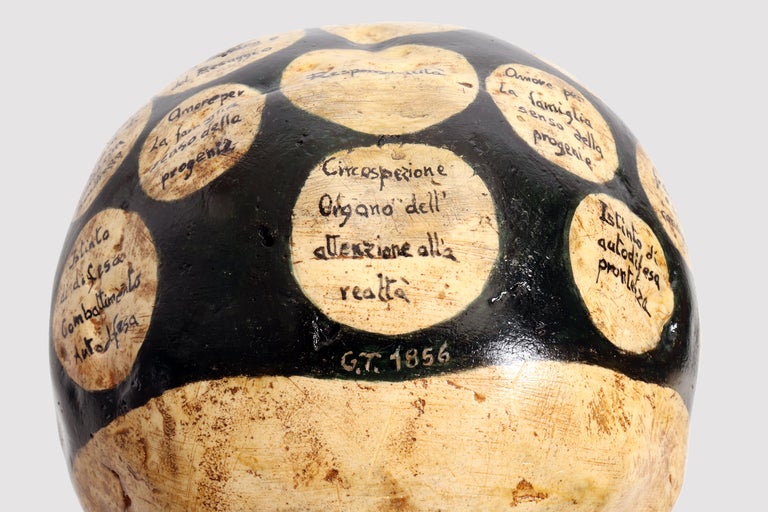 Responsabilità
Amore per
La famiglia
senso della
progenie
Amore per
La famiglia
senso della
progenie
Circospezione
Organo dell'
attenzione alla
realtà
Istinto
di difesa
Combattimento
Autodifesa
Istinto di
autodifesa
prontezza
G.T. 1856